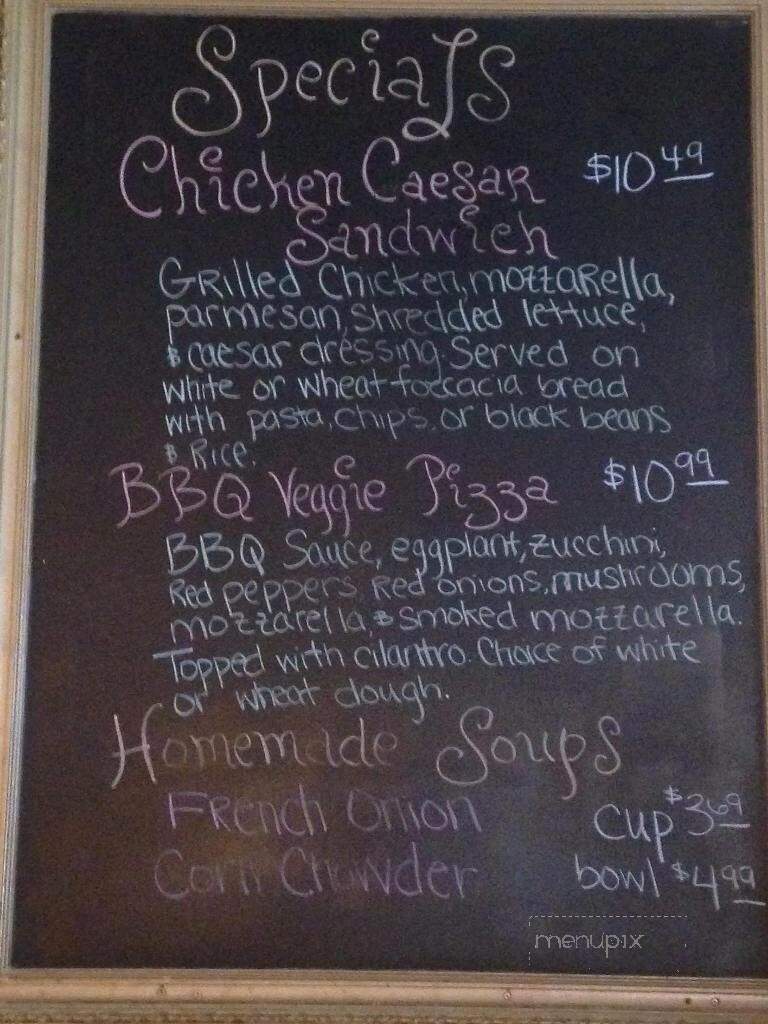 Specials
Chicken Caesar $10.49
Sandwich
Grilled Chicken, mozzarella,
parmesan, shredded lettuce,
& caesar dressing. Served on
white or wheat foccacia bread
with pasta, chips, or black beans
& Rice.
BBQ Veggie Pizza $10.99
BBQ Sauce, eggplant, zucchini,
Red peppers, Red onions, mushrooms,
mozzarella, & smoked mozzarella.
Topped with cilantro. Choice of white
or wheat dough.
Homemade Soups
French Onion cup $3.69
Corn Chowder bowl $4.99
menupix